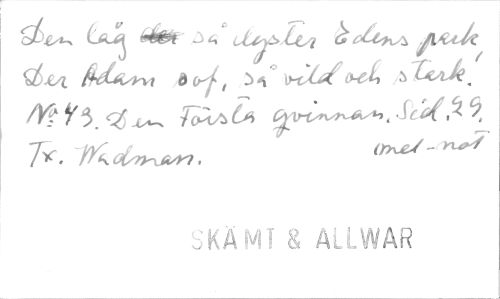 Den låg så dyster Edens park,
Der Adam sof, så vild och stark.
No 43. Den Första qvinnan. Sid. 29.
Tx. Wadman. mel-not
SKÄMT & ALLWAR